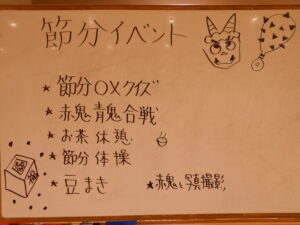 節分イベント
★節分OXクイズ
★赤鬼青鬼合戦
★お茶休憩
★節分体操
★豆まき ★赤鬼と写真撮影